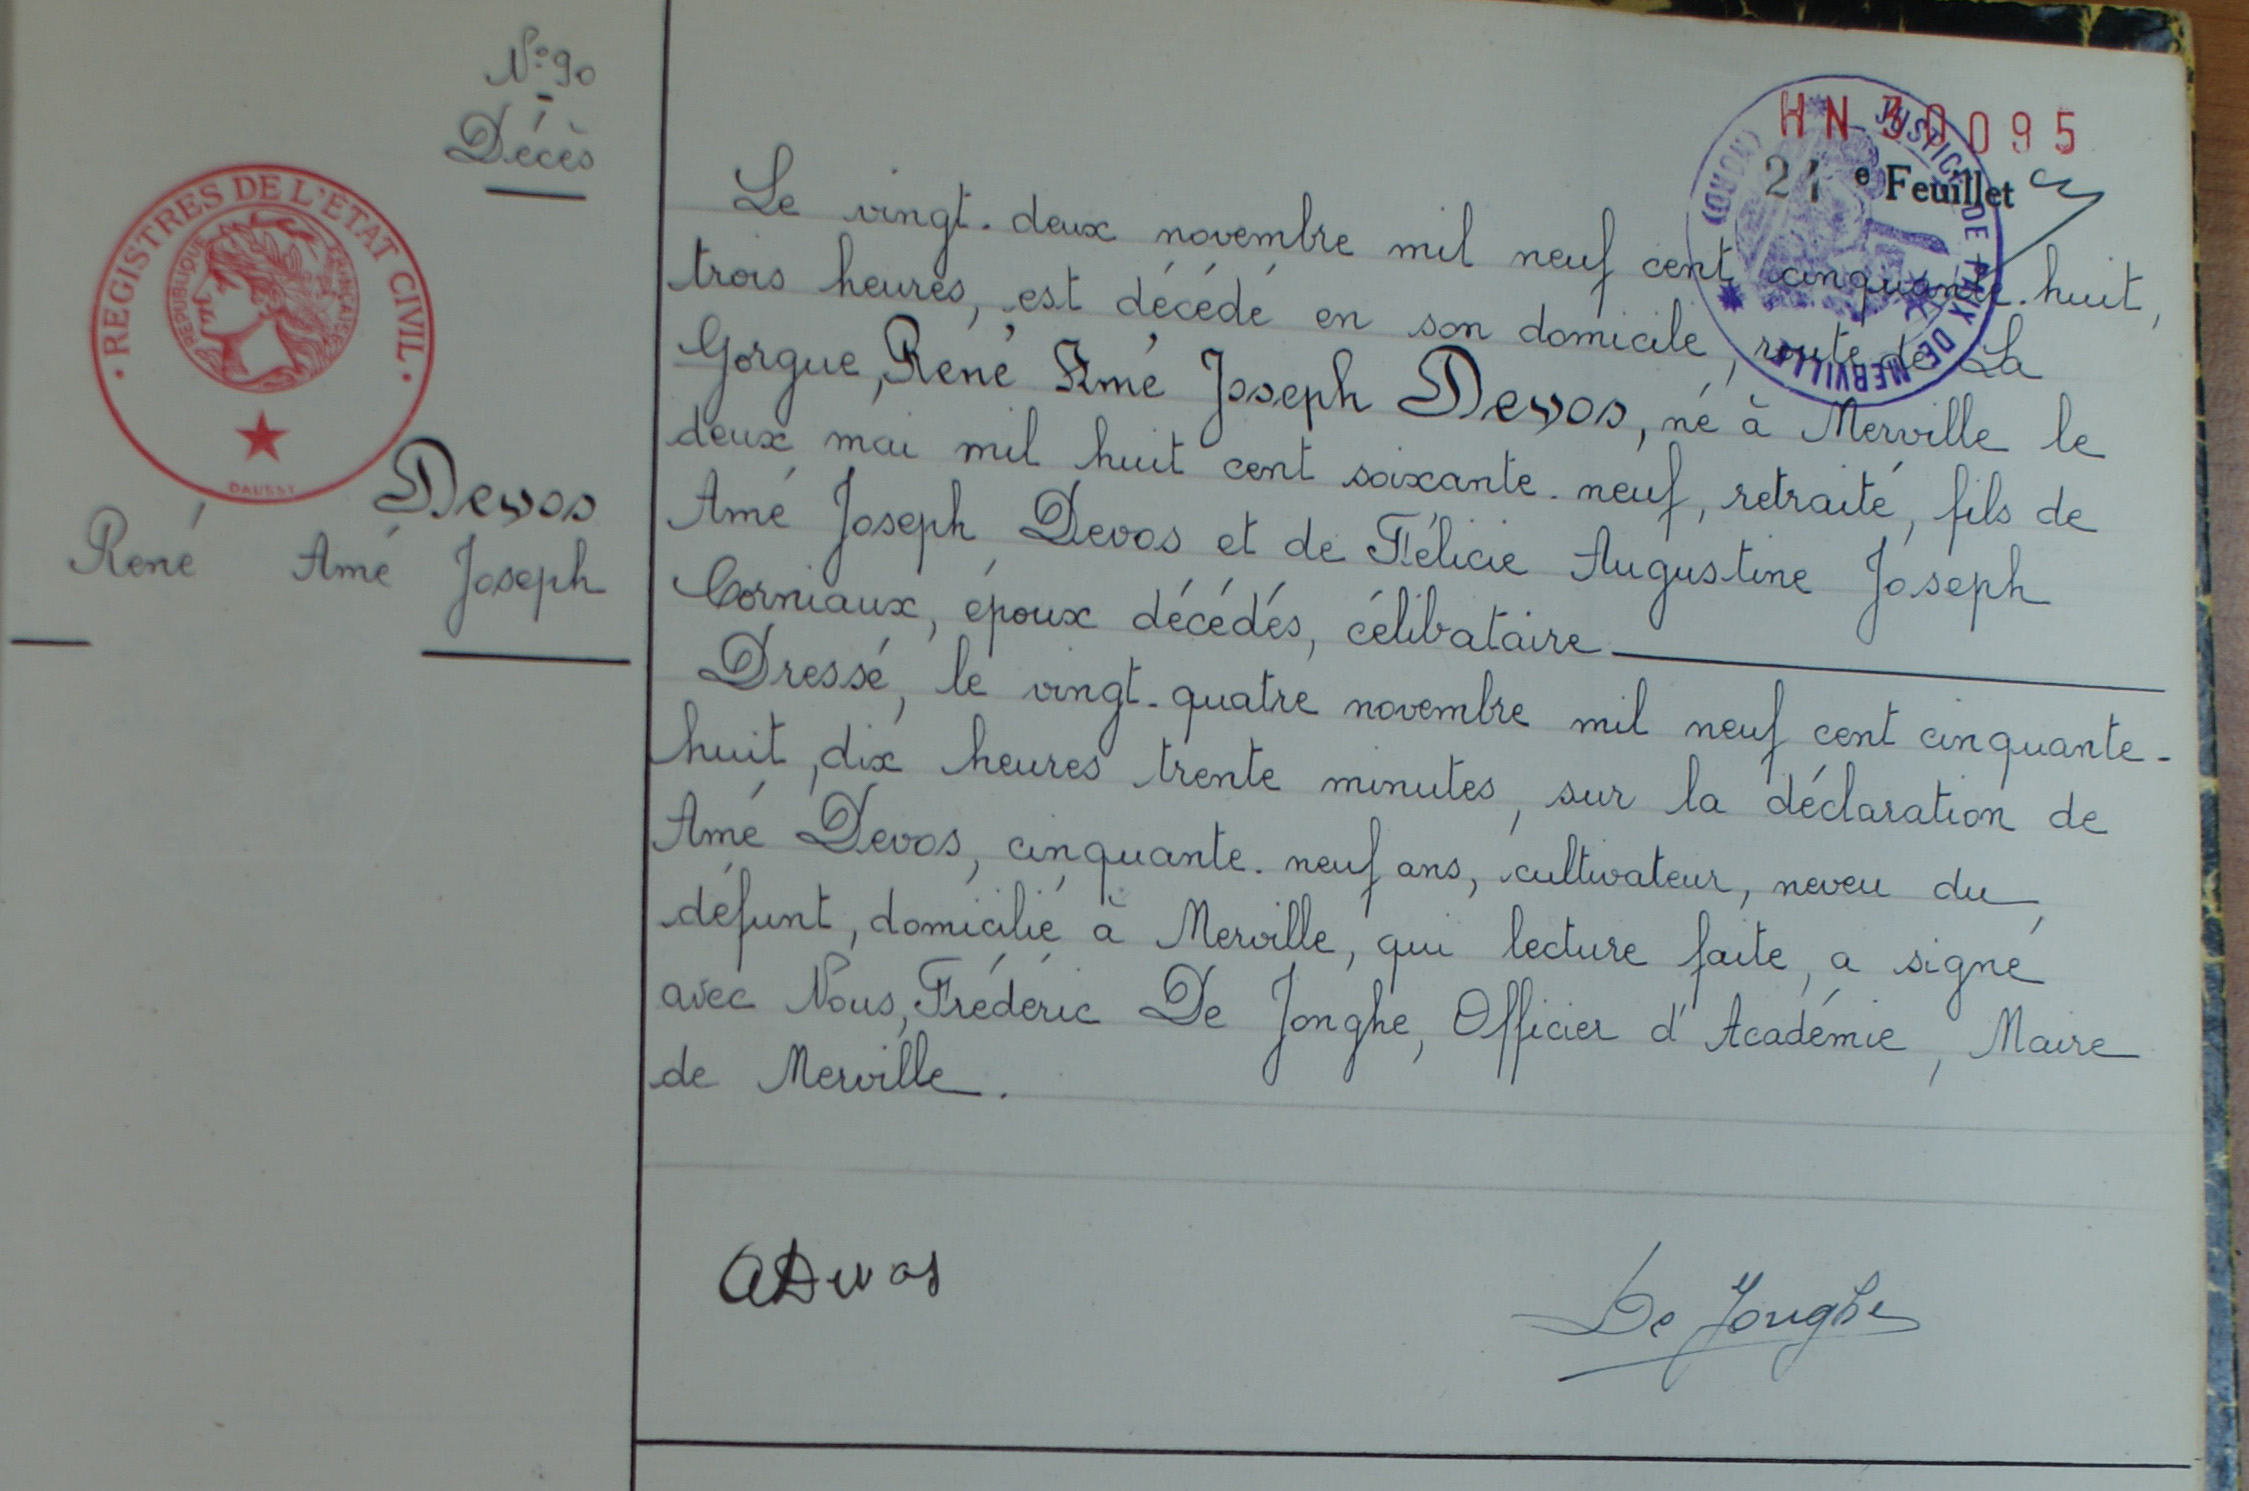 N° 90
Décès
REGISTRES DE L'ÉTAT CIVIL
RÉPUBLIQUE FRANÇAISE
DAUSSY
Devos
René Amé Joseph
HN 30095
21 e Feuillet
JUSTICE DE PAIX DE MERVILLE (NORD)
Le vingt-deux novembre mil neuf cent cinquante-huit,
trois heures, est décédé en son domicile, route de La
Gorgue, René Amé Joseph Devos, né à Merville le
deux mai mil huit cent soixante-neuf, retraité, fils de
Amé Joseph Devos et de Félicie Augustine Joseph
Corniaux, époux décédés, célibataire
Dressé, le vingt-quatre novembre mil neuf cent cinquante-
huit, dix heures trente minutes, sur la déclaration de
Amé Devos, cinquante-neuf ans, cultivateur, neveu du
défunt, domicilié à Merville, qui lecture faite, a signé
avec Nous, Frédéric De Jonghe, Officier d'Académie, Maire
de Merville.
A Devos
De Jonghe